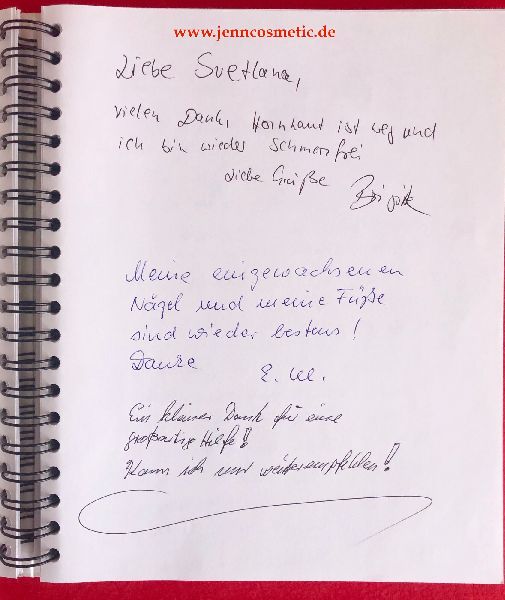 www.jenncosmetic.de
Liebe Svetlana,
vielen Dank, Hornhaut ist weg und
ich bin wieder schmerzfrei
Liebe Grüße Brigitte
Meine eingewachsenen
Nägel und meine Füße
sind wieder bestens!
Danke E. M.
Ein kleiner Dank für eine
großartige Hilfe!
Kann ich nur weiterempfehlen!